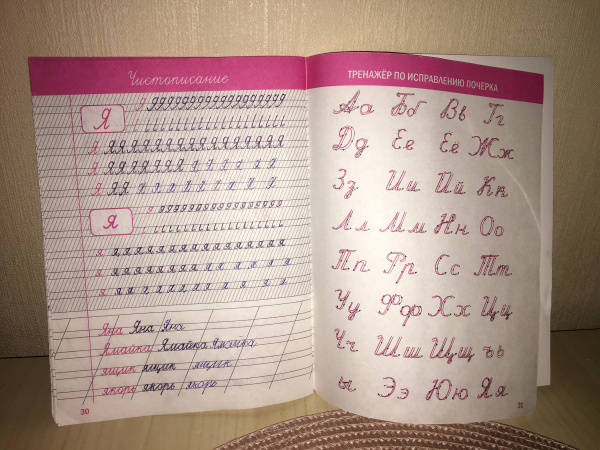 Чистописание
Я
Я
Я ЯЯЯЯЯЯЯЯЯЯЯЯЯЯ
Я ЯЯЯЯЯЯЯ Я Я Я Я Я Я
Я ЯЯ Я Я Я Я Я Я Я Я
я
я яяяяяяяяяяяяяяя
я яяяяяяя я я я я я я
я яя я я я я я я я я
Яна Яна Яна
Ямайка Ямайка Ямайка
ящик ящик ящик
якорь якорь якорь
30
ТРЕНАЖЁР ПО ИСПРАВЛЕНИЮ ПОЧЕРКА
Аа Бб Вв Гг
Дд Ее Ёё Жж
Зз Ии Йй Кк
Лл Мм Нн Оо
Пп Рр Сс Тт
Уу Фф Хх Цц
Чч Шш Щщ ъь
ы Ээ Юю Яя
31